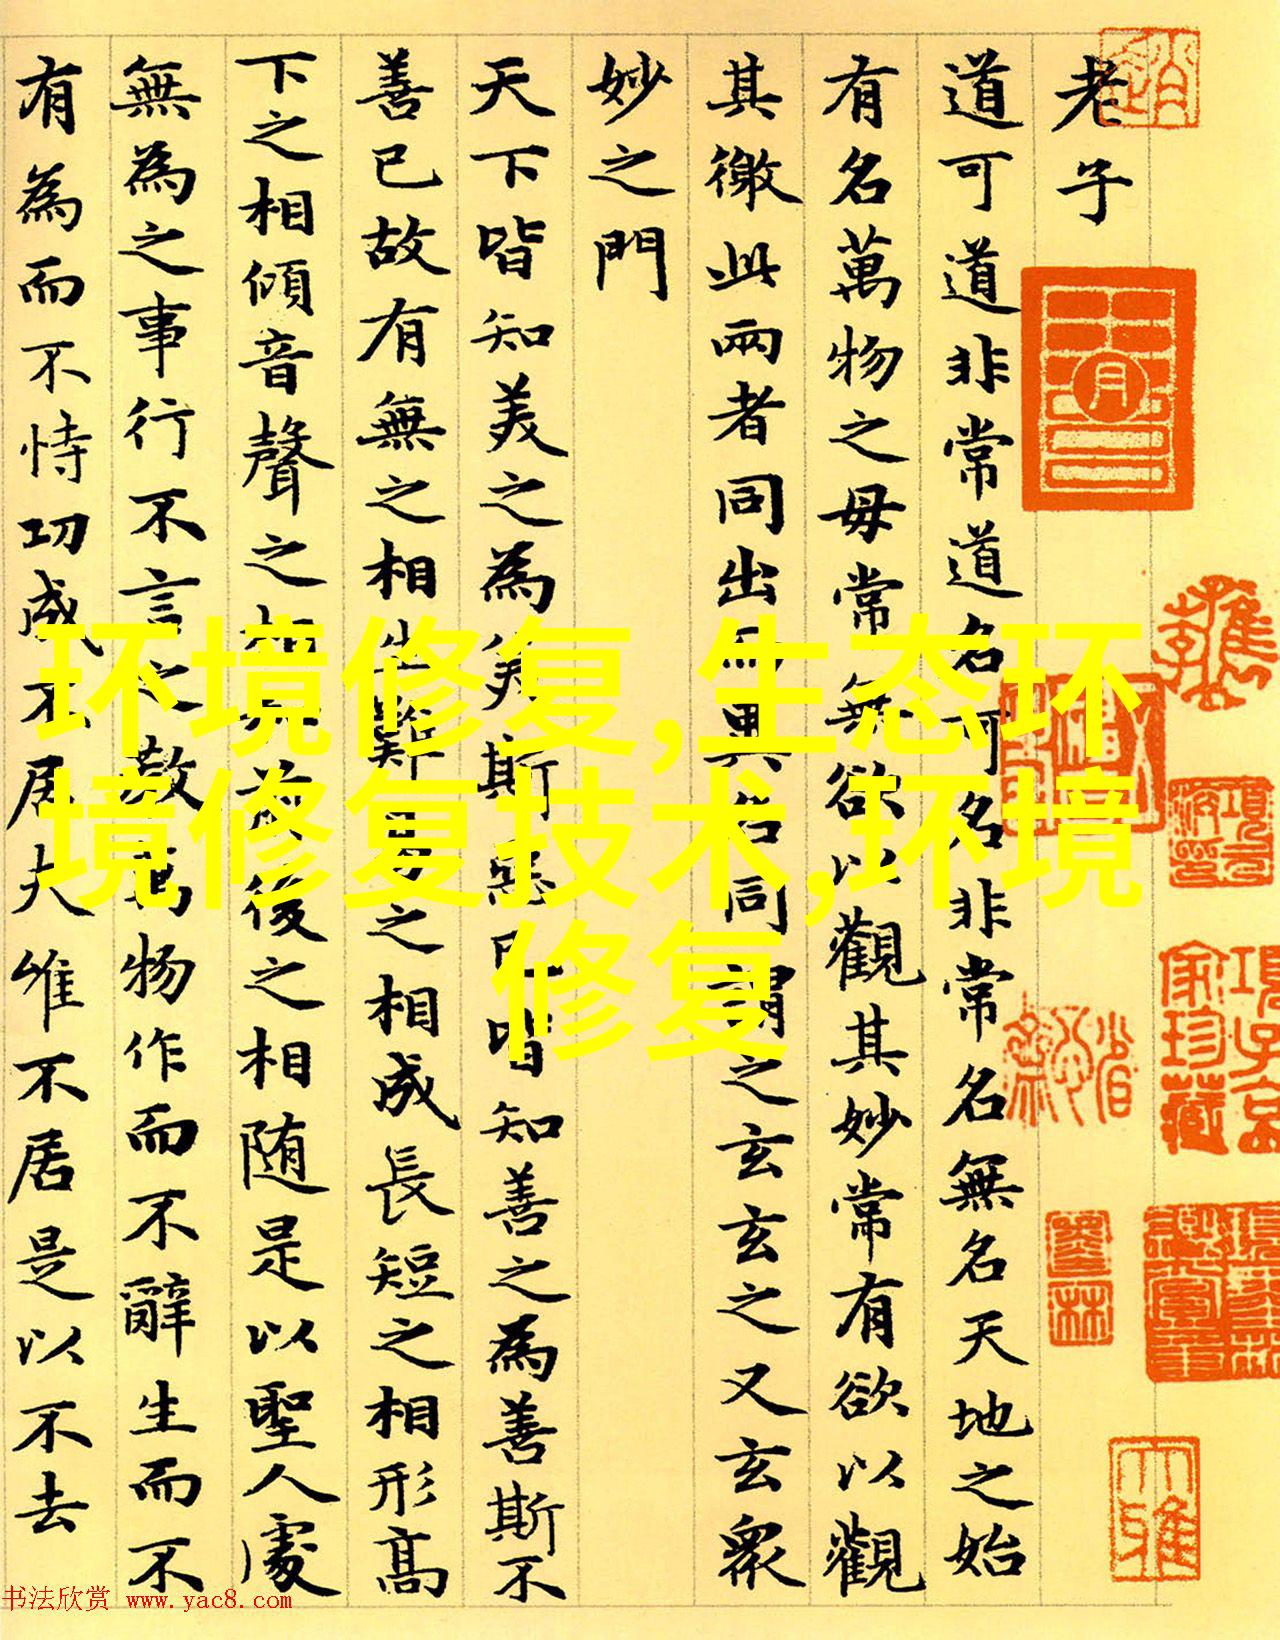 老子
道可道非常道名可名非常名無名天地之始
有名萬物之毋常無欲以觀其妙常有欲以觀
其徼此兩者同出而異名同謂之玄玄之又玄衆
妙之門
天下皆知美之為美斯惡已皆知善之為善斯不
善已故有無之相生難易之相成長短之相形髙
下之相傾音聲之相和前後之相随是以聖人處
無為之事行不言之教萬物作而不辭生而不
有為而不恃功成不居夫唯不居是以不去
环境修复,生态环
境修复技术,环境
修复
項子京
家珍藏
书法欣赏 www.yac8.com